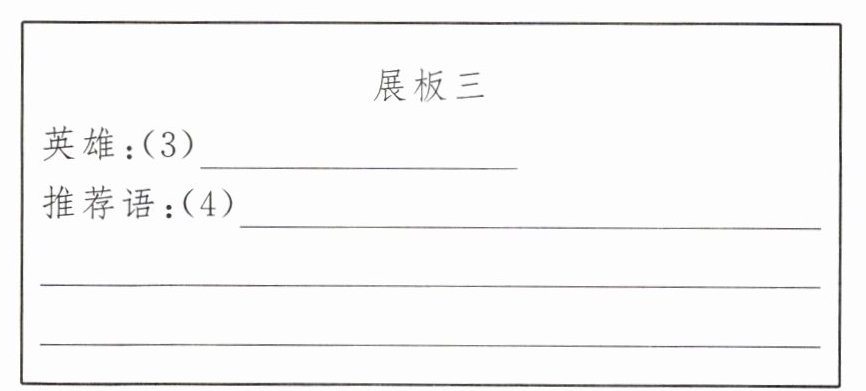 展板三
英雄:(3)
推荐语:(4)